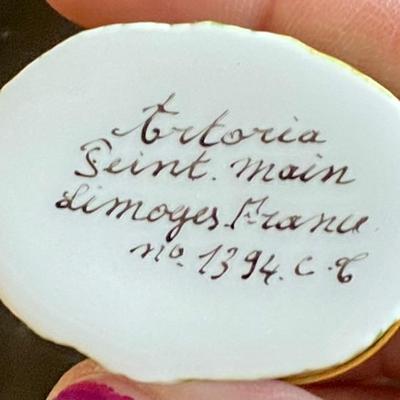 Artoria
Peint. Main
Limoges. France
no. 1394. C. C